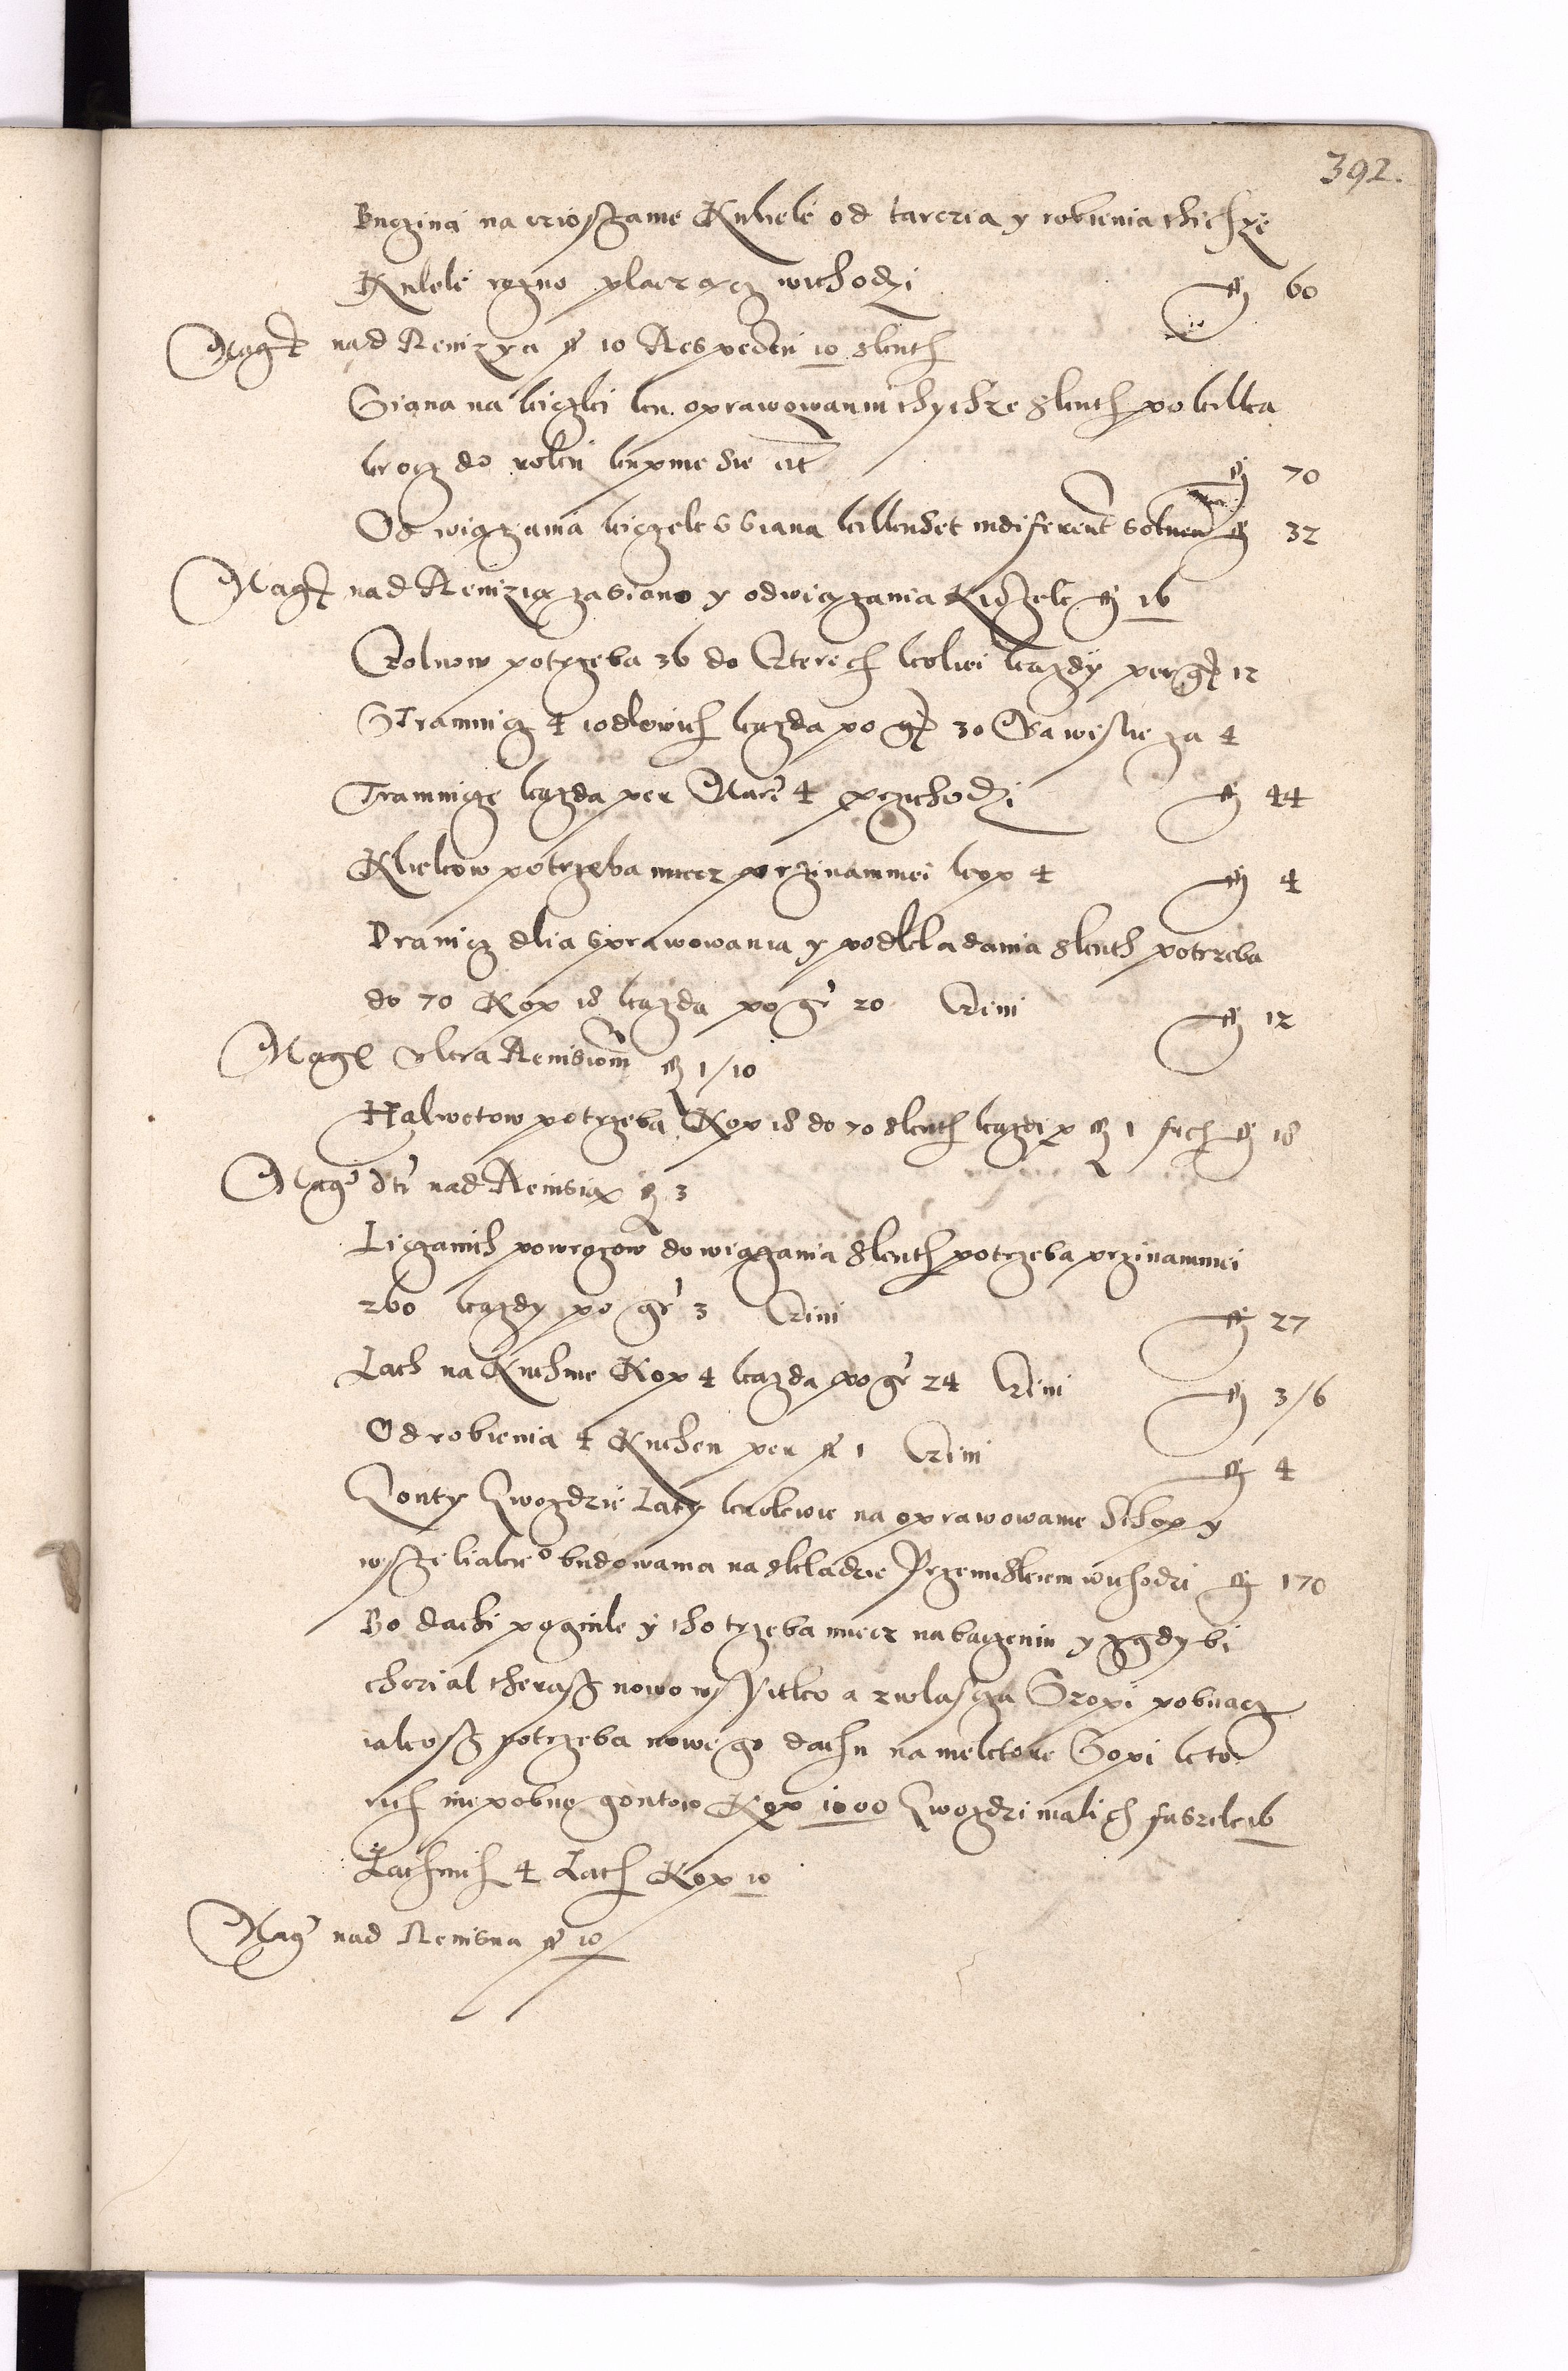 392.
Buczina na czioszanie Kuliele od tarczia y robienia thichze
Kulele rozno placzacz wichodzi fl 60
Magt nad Remizya fl 10 Respectu 10 slenth
Siana na kiczki ku oprawowaniu thychze slenth po kilka
krocz do roku kupuie sie ut fl 70
Od wiązania kiczek S Siana kilkuset indiferent Solvendo fl 32
Magt nad Remizią za Siano y od wiązania Kidzele fl 16
Rolnow potrzeba 36 do kterech kolwi kazdÿ per gr 12
Stramnicz 4 iodlowich kazda po gr 30 za 4
Tramnicze kazda per Marc 4 przichodzi fl 44
Klielkow potrzeba miecz przinamniei kop 4 fl 4
Dranicz dlia sprawowania y podkladania slenth potrzeba
do 70 Kop 18 kazda po gr 20 Czini fl 12
Magt Ultra Remisiom fl 1/10
Halwotow potrzeba Kop 18 do 70 slenth kazdi p fl 1 fich fl 18
Magr dti nad Remisią fl 3
Liczanich powrozow do wiązania slenth potrzeba przinamniei
260 kazdy po gr 3 Czini fl 27
Lath na Kuchnie Kop 4 kazda po gr 24 Czini fl 3/6
Od robienia 4 Kuchen per fl 1 Czini fl 4
Gonty Gwozdzie Laty krokwie na oprawowanie Schop y
wszeliakie° budowania na skladzie Przemiskiem wichodzi fl 170
Bo dachi pognile y tho trzeba miecz na baczeniu y gdy bi
chczial theraz nowo wszitko a zwlascza Szopi pobiiacz
iakosz potrzeba nowego dachu na niektore Sopi kto
rich niepobno gontow Kop 1000 Gwozdzi malich fasczek 16
Lathnich 4 Lath Kop 10
Magr nad Remisia fl 10